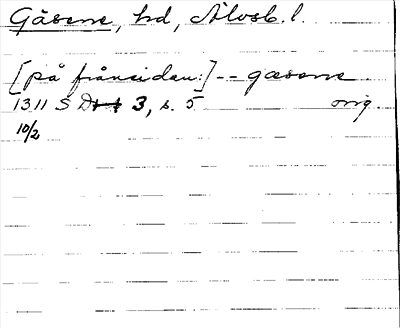 Gäsene, hd, Älvsb. l.
[på frånsidan:] -- gæsene
1311 S D 3, s. 5 orig.
10/2